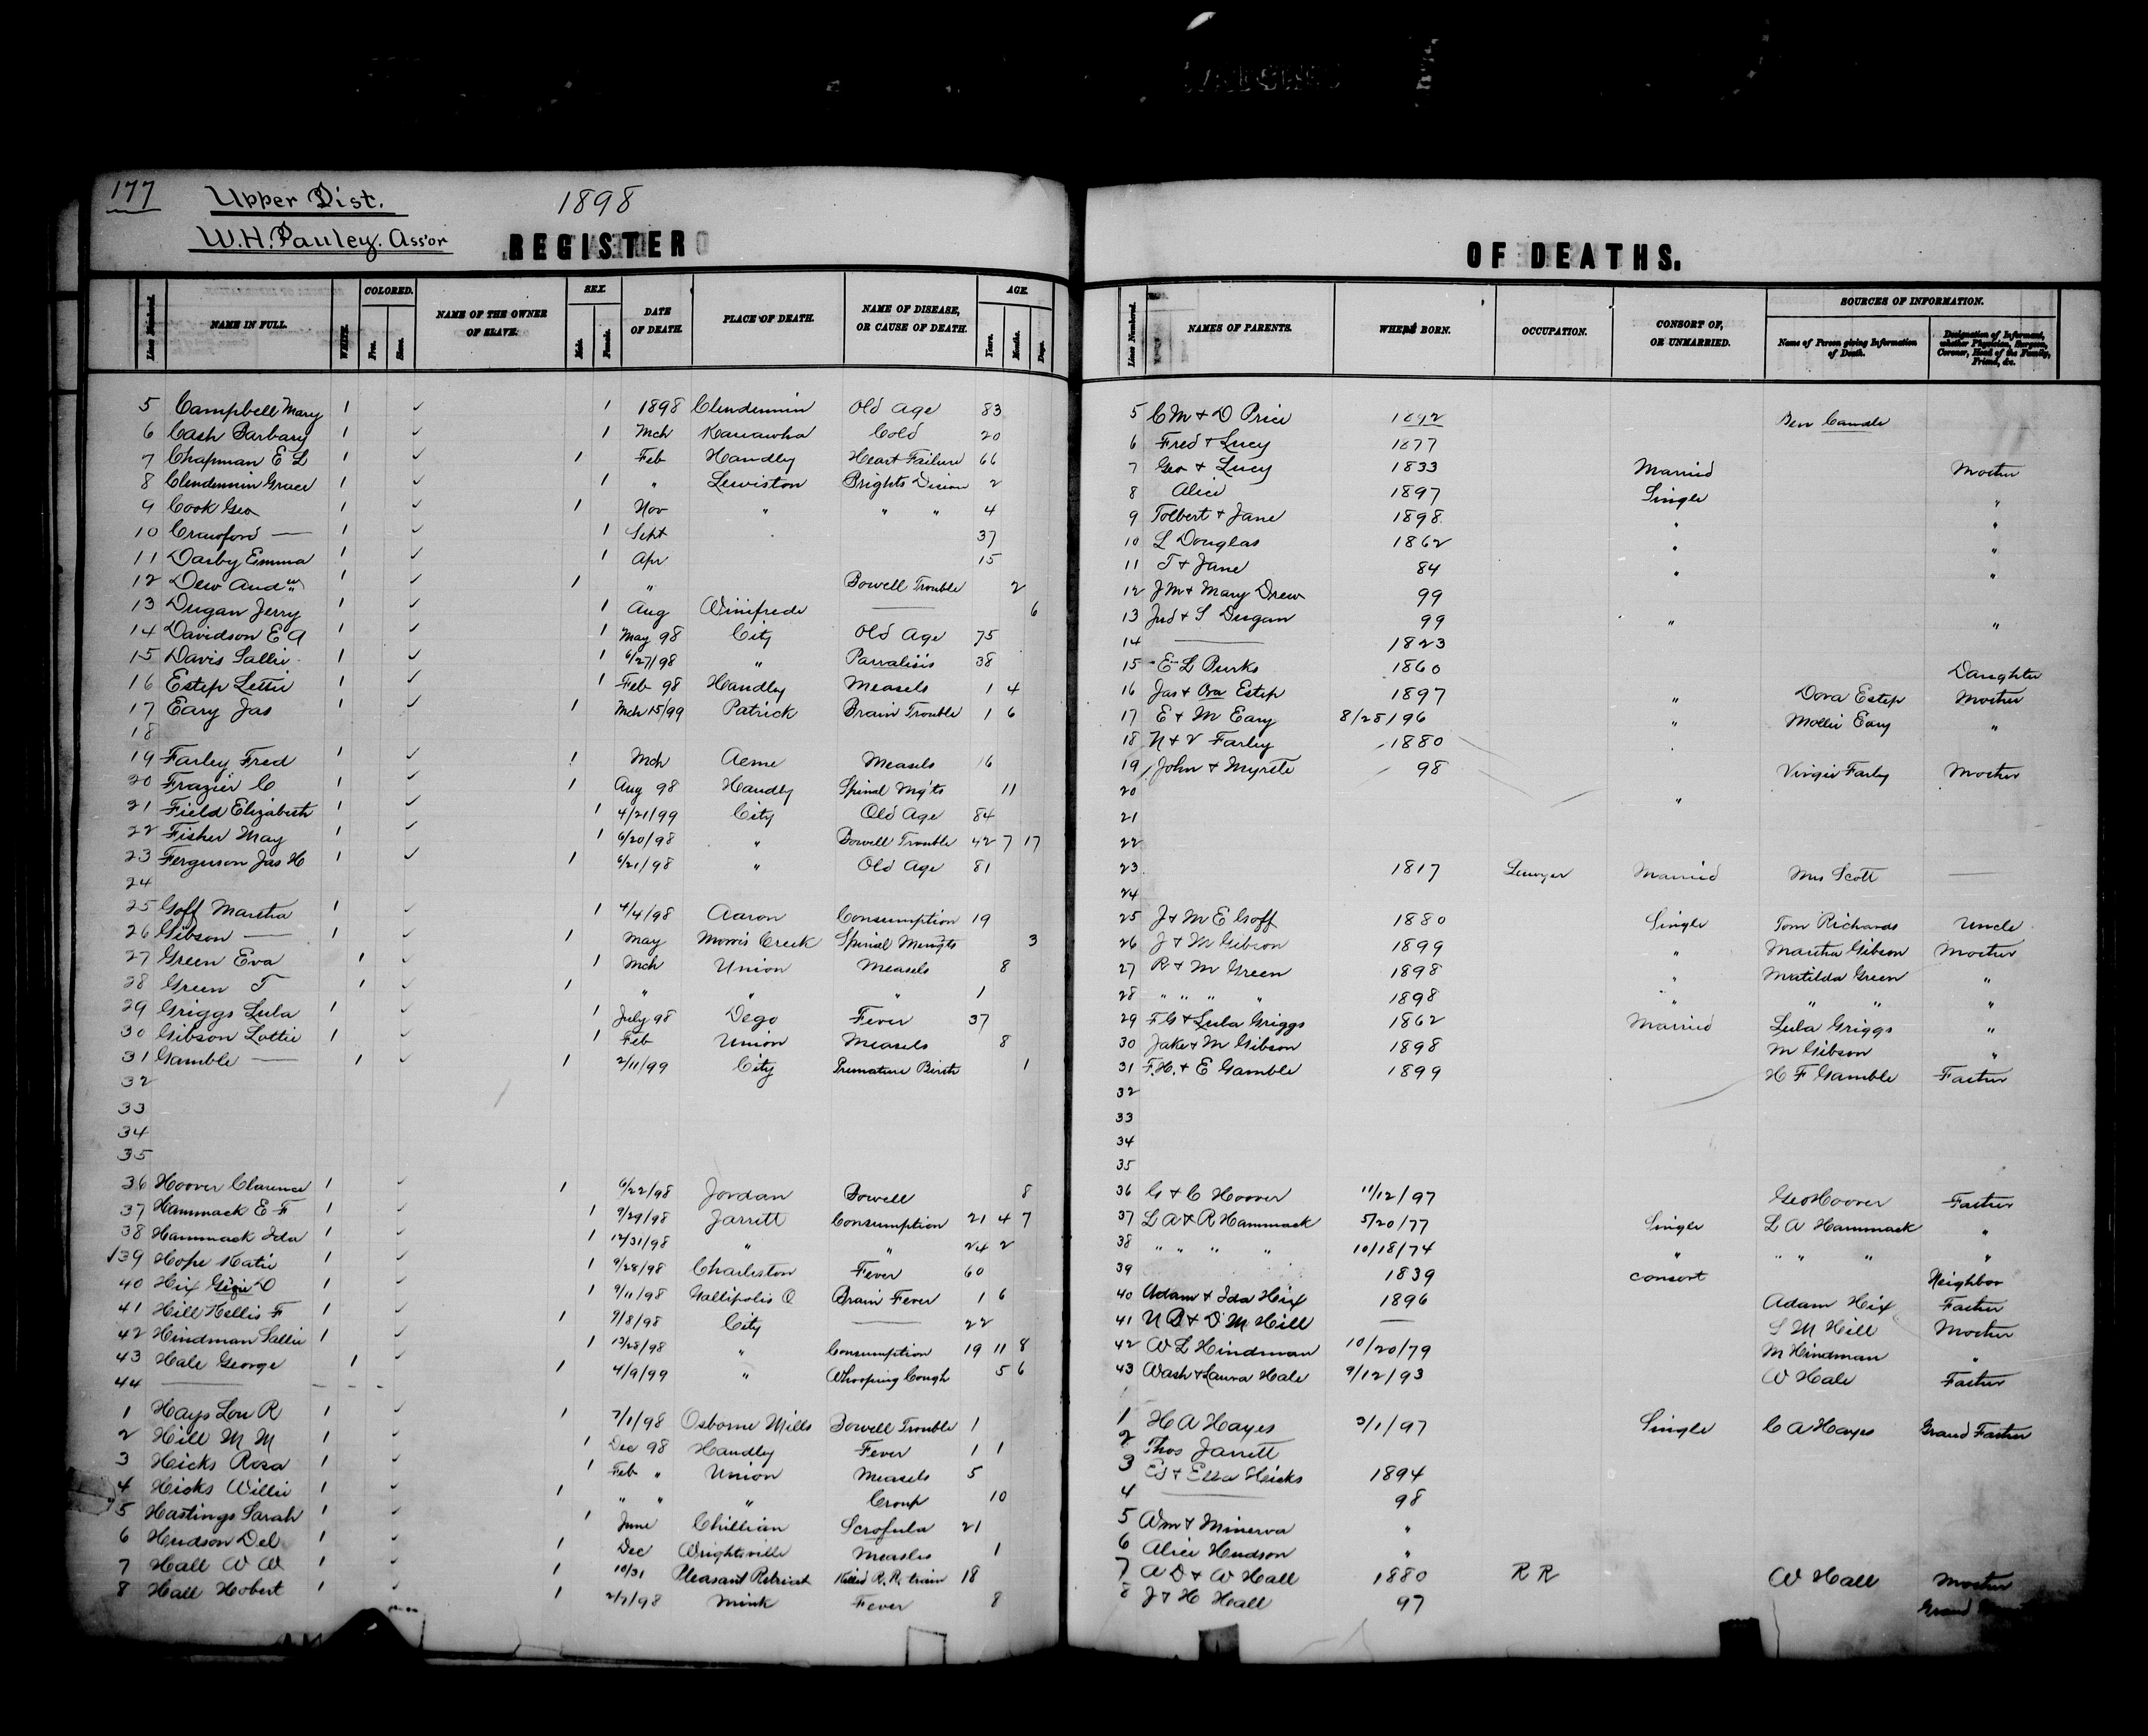 177 Upper Dist. 1898
W.H. Pauley. Ass'or
REGISTER OF DEATHS.
Line Numbered. NAME IN FULL. WHITE. COLORED. Free. Slave. NAME OF THE OWNER OF SLAVE. SEX. Male. Female. DATE OF DEATH. PLACE OF DEATH. NAME OF DISEASE, OR CAUSE OF DEATH. AGE. Years. Months. Days.
Lines Numbered. NAMES OF PARENTS. WHERE BORN. OCCUPATION. CONSORT OF, OR UNMARRIED. SOURCES OF INFORMATION. Name of Person giving Information of Death. Designation of Informant, whether Physician, Surgeon, Coroner, Head of the Family, Friend, &c.
5 Campbell Mary 1 ✓ 1 1898 Clendennin Old Age 83
6 Cash Barbary 1 ✓ 1 Mch Kanawha Cold 20
7 Chapman E L 1 ✓ 1 Feb Handley Heart Failure 66
8 Clendennin Grace 1 ✓ 1 " Lewiston Brights 2
9 Cook Geo 1 ✓ 1 Nov " " " 4
10 Crawford — 1 ✓ 1 Sept 37
11 Darby Emma 1 ✓ 1 Apr 15
12 Dew And 1 ✓ 1 " Bowell Trouble 2
13 Dugan Jerry 1 ✓ 1 Aug Winifrede — 6
14 Davidson E A 1 ✓ 1 May 98 City Old Age 75
15 Davis Sallie 1 ✓ 1 6/27/98 " Parralisis 38
16 Estep Lettie 1 ✓ 1 Feb 98 Handley Measels 1 4
17 Eary Jas 1 ✓ 1 Mch 15/99 Patrick Brain Trouble 1 6
18
19 Farley Fred 1 ✓ 1 Mch Acme Measels 16
20 Frazier C 1 ✓ 1 Aug 98 Handly Spinal Mg'ts 11
21 Field Elizabeth 1 ✓ 1 4/21/99 City Old Age 84
22 Fisher May ✓ 1 6/20/98 " Bowell Trouble 42 7 17
23 Ferguson Jas H 1 ✓ 1 6/21/98 " Old Age 81
24
25 Goff Martha 1 ✓ 1 4/4/98 Aaron Consumption 19
26 Gibson — 1 ✓ 1 May Morris Creek Spinal Mengts 3
27 Green Eva 1 ✓ 1 Mch Union Measels 8
28 Green T 1 ✓ 1 " " " 1
29 Griggs Lula 1 ✓ 1 July 98 Dego Fever 37
30 Gibson Lottie 1 ✓ 1 Feb Union Measels 8
31 Gamble — 1 ✓ 1 2/11/99 City Premature Birth 1
32
33
34
35
36 Hoover Clarence 1 ✓ 1 6/22/98 Jordan Bowell 8
37 Hammack E F 1 ✓ 1 9/29/98 Jarrett Consumption 21 4 7
38 Hammack Ida 1 ✓ 1 12/31/98 " " 24 2
139 Hope Katie 1 ✓ 1 9/28/98 Charleston Fever 60
40 Hix O 1 ✓ 1 9/11/98 Gallipolis O Brain Fever 1 6
41 Hill Hellis F 1 ✓ 1 9/8/98 City — 22
42 Hindman Sallie 1 ✓ 1 12/28/98 " Consumption 19 11 8
43 Hale George 1 ✓ 1 4/9/99 " Whooping Cough 5 6
44 —
1 Hays Lon R 1 ✓ 1 7/1/98 Osborne Mills Bowell Trouble 1
2 Hill M M 1 ✓ 1 Dec 98 Handley Fever 1 1
3 Hicks Rosa 1 ✓ 1 Feb " Union Measels 5
4 Hicks Willie 1 ✓ 1 " " " Croup 10
5 Hastings Sarah 1 ✓ 1 June Chillian Scrofula 21
6 Hudson Del 1 ✓ 1 Dec Wrightsville Measles 1
7 Hall W W 1 ✓ 1 10/31 Pleasant Retreat Killed R. R. train 18
8 Hall Hobert 1 ✓ 1 2/7/98 Mink Fever 8
5 C M & D Price Ben
6 Fred & Lucy 1877
7 Geo & Lucy 1833 Married Mother
8 Alice 1897 Single "
9 Tolbert & Jane 1898 " "
10 L Douglas 1862 " "
11 T & Jane 84 " "
12 J M & Mary Drew 99
13 Jud & S Dugan 99 " "
14 — 1823
15 E L Burks 1860 Daughter
16 Jas & Ora Estep 1897 " Dora Estep Mother
17 E & M Eary 8/28/96 " Mollie Eary "
18 N & V Farley 1880
19 John & Myrtle 98 Virgie Farley Mother
20 "
21
22
23 1817 Lawyer Married Mrs Scott —
24
25 J & M E Goff 1880 Single Tom Richards Uncle
26 J & M Gibson 1899 " Martha Gibson Mother
27 R & M Green 1898 " Matilda Green "
28 " " " " 1898 " " " "
29 F G & Lula Griggs 1862 Married Lula Griggs "
30 Jake & M Gibson 1898 M Gibson "
31 F.H. & E Gamble 1899 H F Gamble Father
32
33
34
35
36 G & C Hoover 11/12/97 Geo Hoover Father
37 L A & R Hammack 5/20/77 Single L A Hammack "
38 " " " " 10/18/74 " " " " "
39 1839 Consort Neighbor
40 Adam & Ida Hix 1896 Adam Hix Father
41 N B & D M Hill — S M Hill Mother
42 W L Hindman 10/20/79 M Hindman "
43 Wash & Laura Hale 9/12/93 W Hale Father
1 H A Hayes 3/1/97 Single C A Hayes Grand Father
2 Thos Jarrett
3 Ed & Ella Hicks 1894
4 — 98
5 Wm & Minerva "
6 Alice Hudson "
7 A D & W Hall 1880 R R W Hall Mother
8 J & H Hall 97 Grand